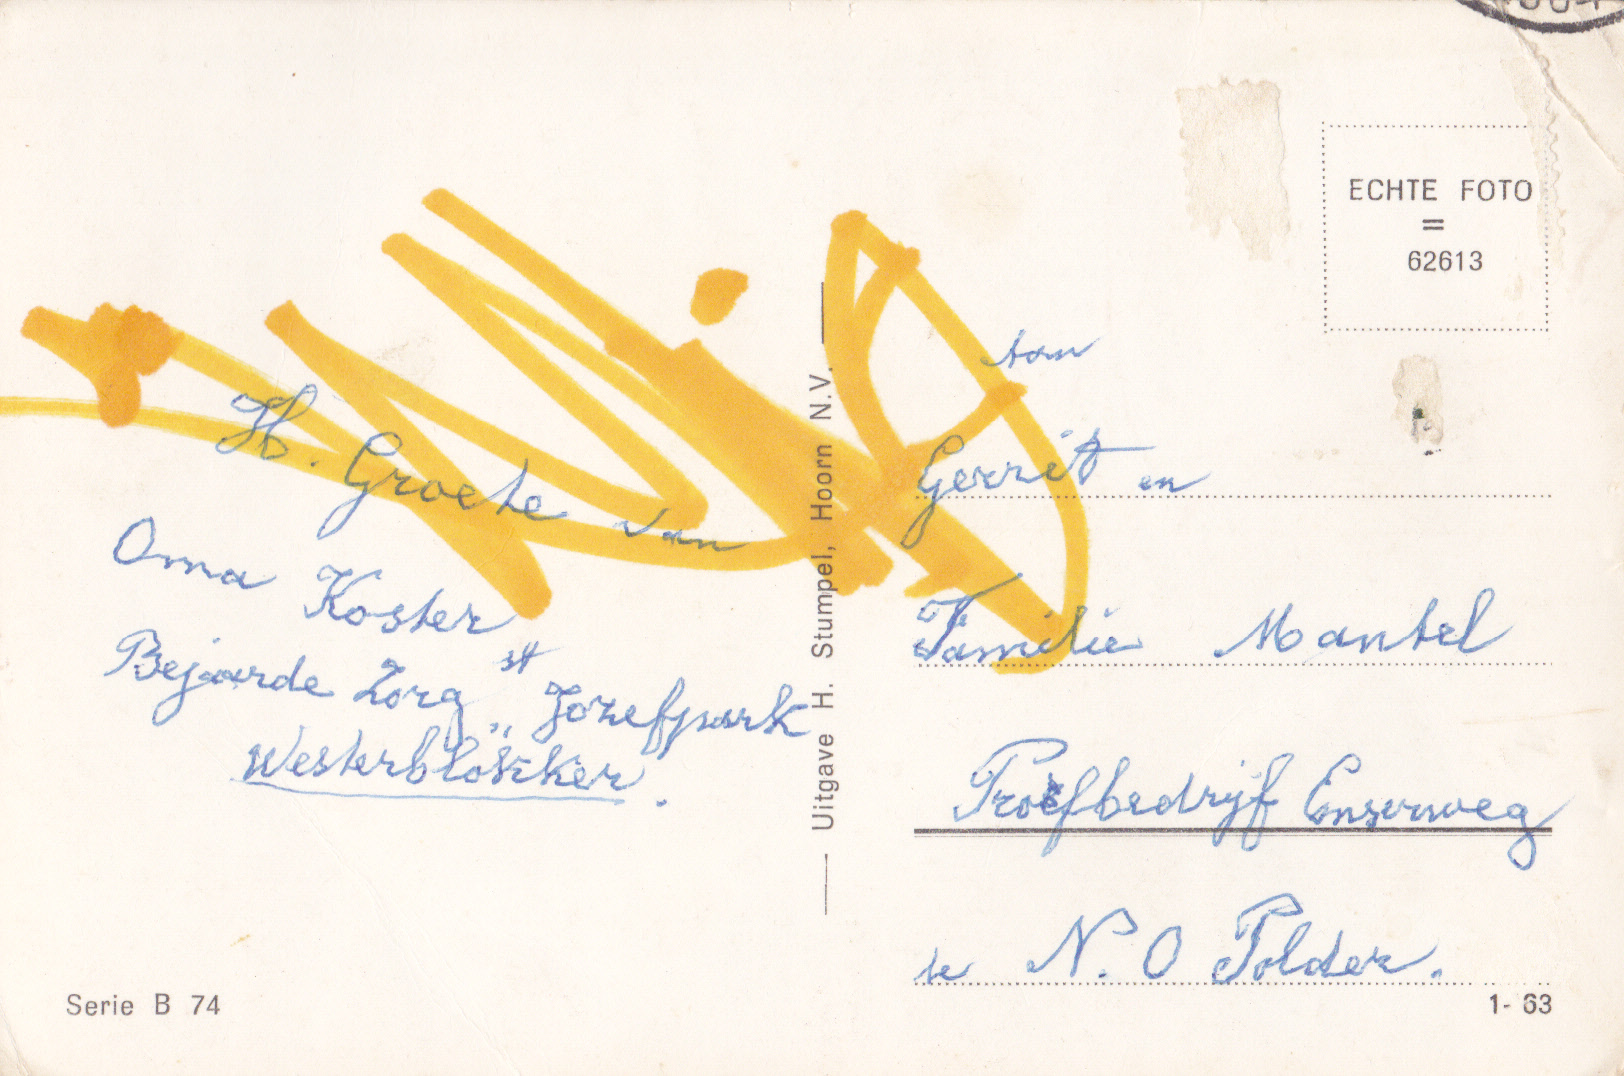 ECHTE FOTO
=
62613
Aan
Gerrit en
Familie Mantel
Proefbedrijf Enserweg
te N.O Polder.
H. Groete van
Oma Koster
Bejaarde Zorg St
„ Jozefpark
Westerblokker.
Uitgave H. Stumpel, Hoorn N.V.
Serie B 74
1-63